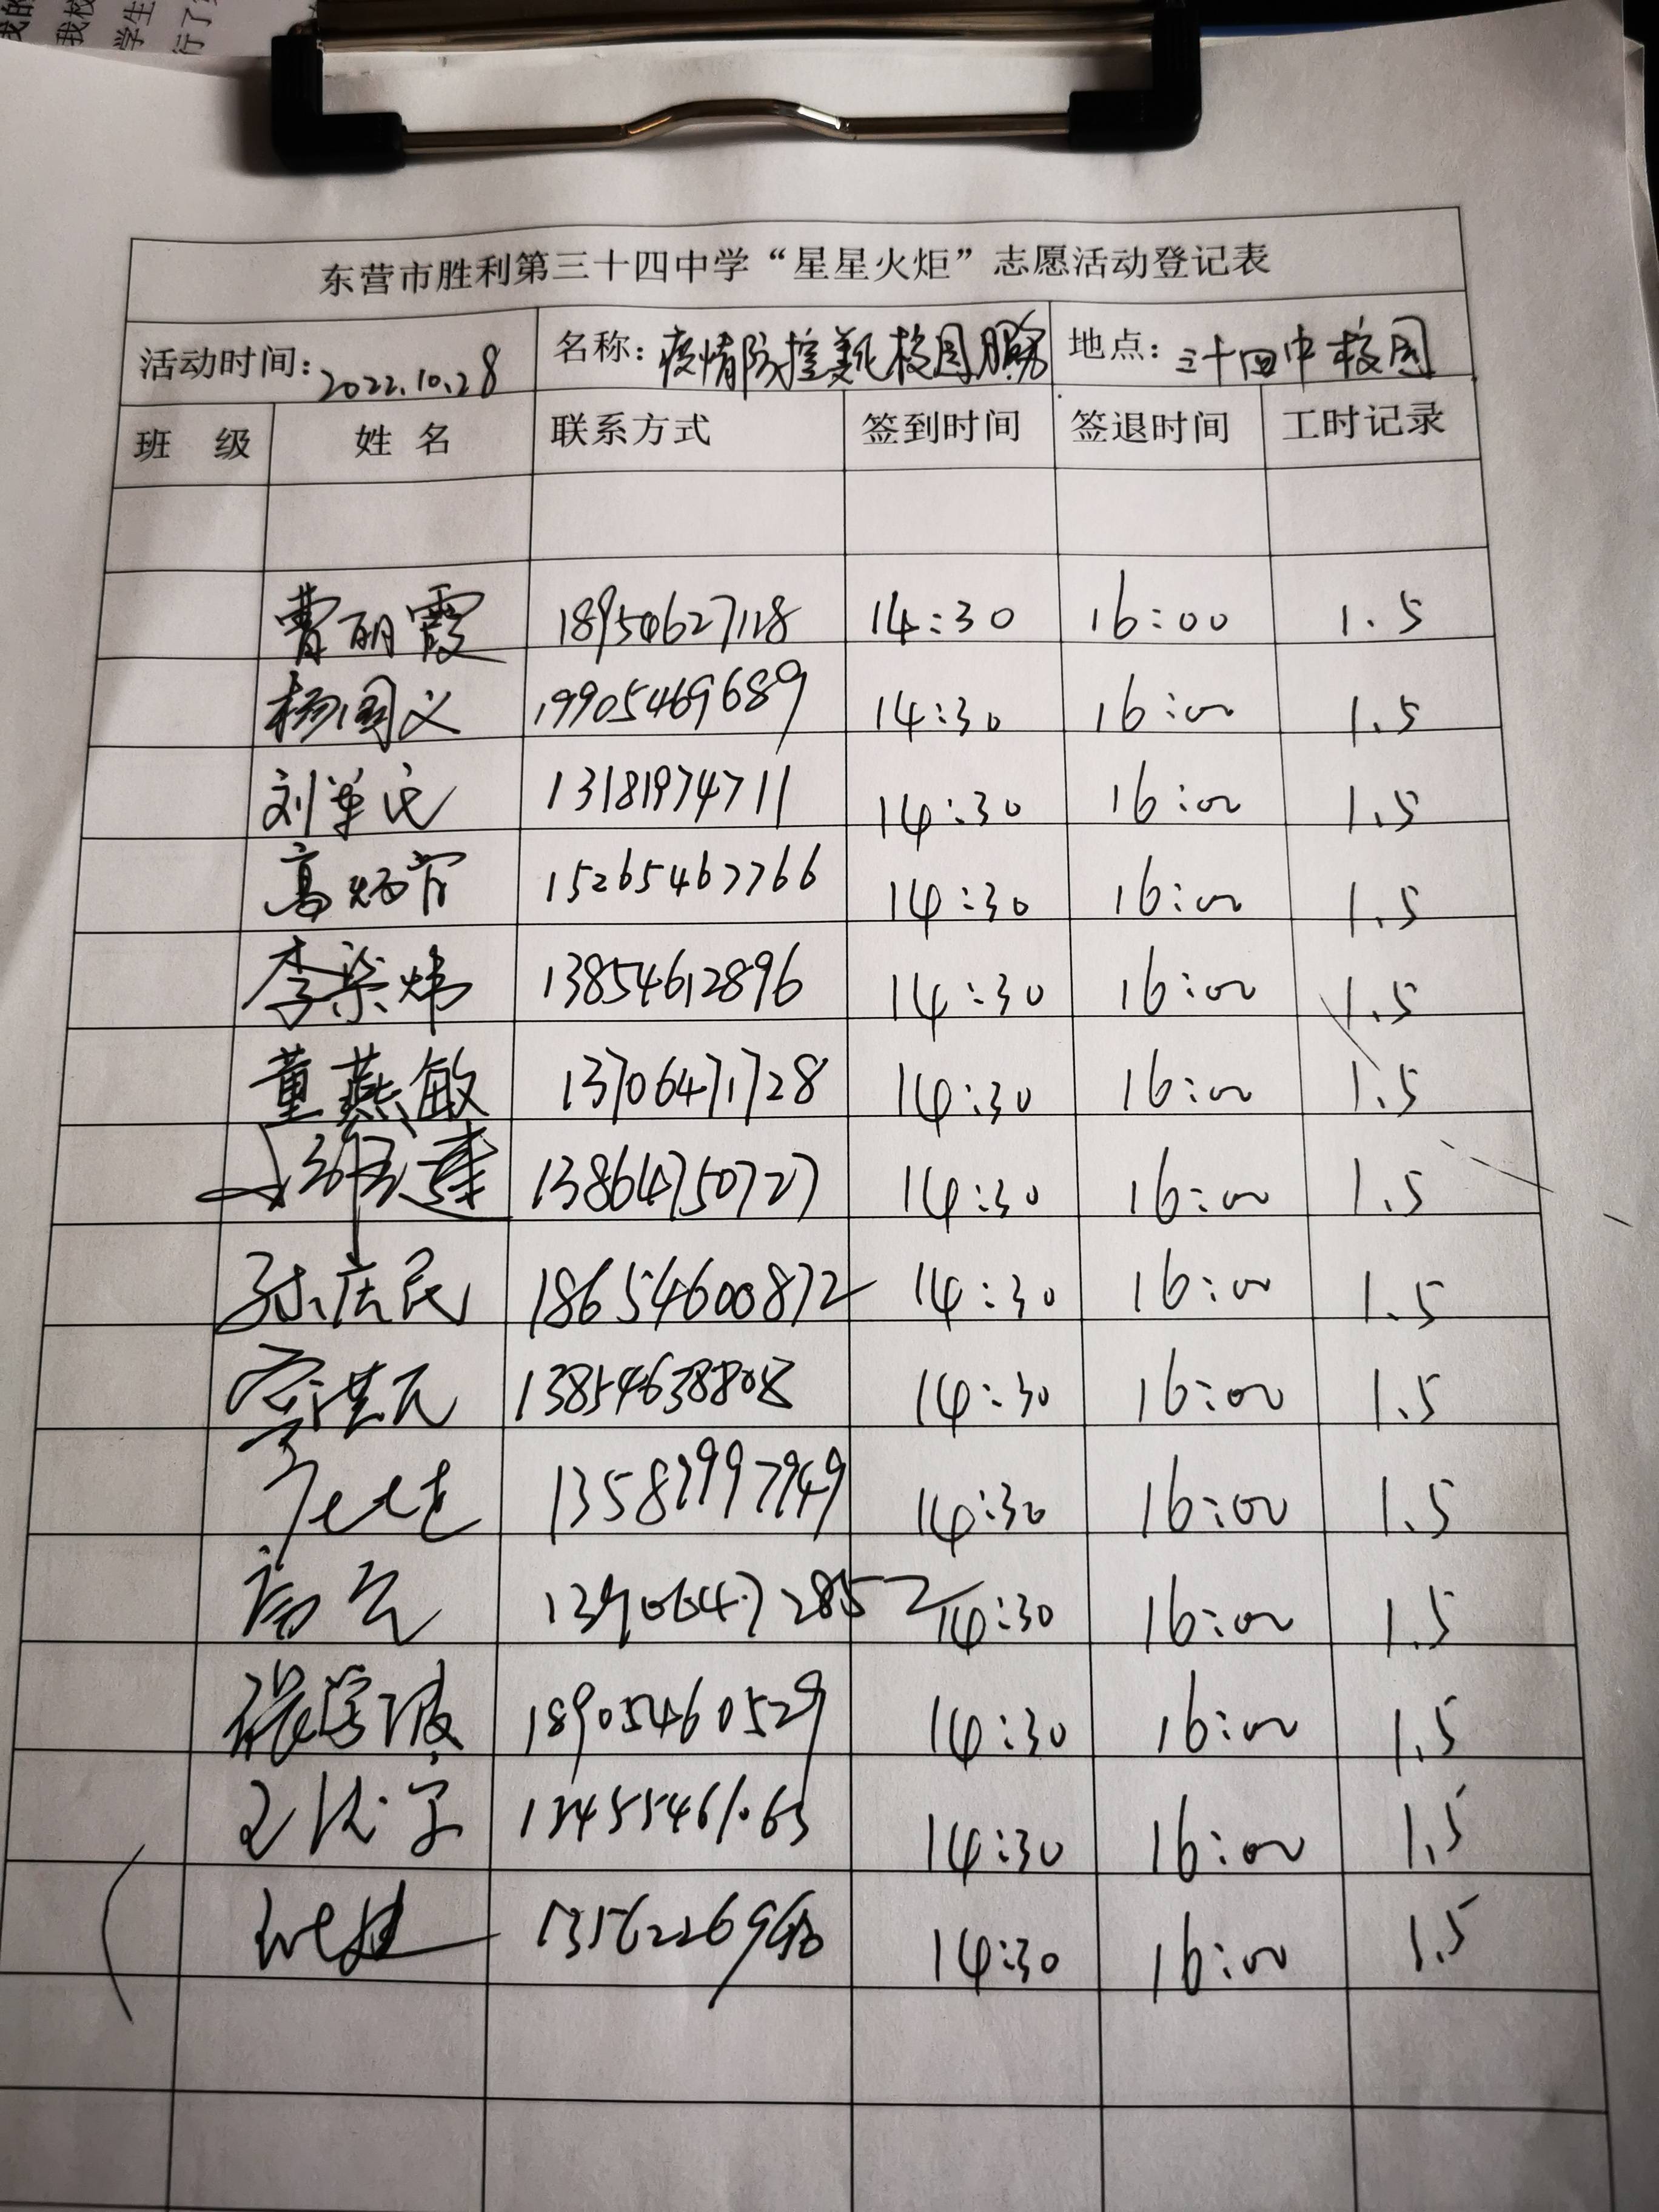 我的
我校
学生
行了
东营市胜利第三十四中学“星星火炬”志愿活动登记表
活动时间：2022.10.28 名称：疫情防控美化校园服务 地点：三十四中校园
班 级 姓 名 联系方式 签到时间 签退时间 工时记录
曹丽霞 18954627128 14:30 16:00 1.5
杨国义 19905469689 14:30 16:00 1.5
刘军民 13181974711 14:30 16:00 1.5
高炳 15265467766 14:30 16:00 1.5
李荣炜 13854612896 14:30 16:00 1.5
董燕敏 13706471728 14:30 16:00 1.5
13864750727 14:30 16:00 1.5
孙庆民 18654600872 14:30 16:00 1.5
13854638808 14:30 16:00 1.5
14:30 16:00 1.5
14:30 16:00 1.5
张学波 18905460529 14:30 16:00 1.5
14:30 16:00 1.5
14:30 16:00 1.5